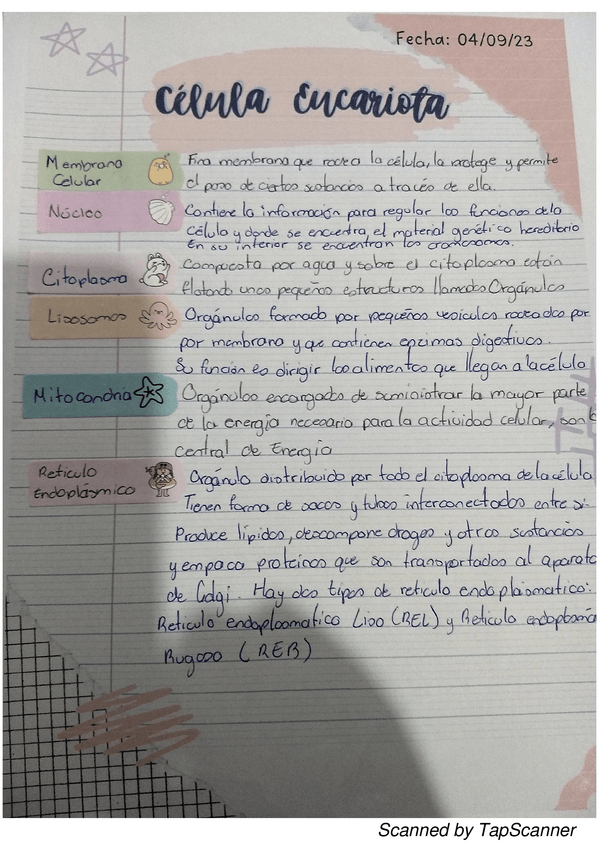 Fecha: 04/09/23
Célula Eucariota
Membrana Celular
Fina membrana que rodea la célula, la protege y permite
el paso de ciertas sustancias a través de ella.
Núcleo
Contiene la información para regular las funciones de la
célula y donde se encuentra el material genético hereditario
En su interior se encuentran los cromosomas.
Citoplasma
Compuesta por agua y sobre el citoplasma están
flotando unas pequeñas estructuras llamadas Orgánulos
Lisosomas
Orgánulos formado por pequeñas vesículas rodeadas por
por membrana y que contienen enzimas digestivas.
Su función es dirigir los alimentos que llegan a la célula
Mitocondria
Orgánulos encargados de suministrar la mayor parte
de la energía necesario para la actividad celular, son
central de Energía
Retículo Endoplásmico
Orgánulo distribuido por todo el citoplasma de la célula
Tienen forma de sacos y tubos interconectados entre si.
Produce lípidos, descompone drogas y otras sustancias
y empaca proteínas que son transportados al aparato
de Golgi. Hay dos tipos de retículo endoplasmatico:
Retículo endoplasmatico Liso (REL) y Retículo
Rugoso (RER)
Scanned by TapScanner